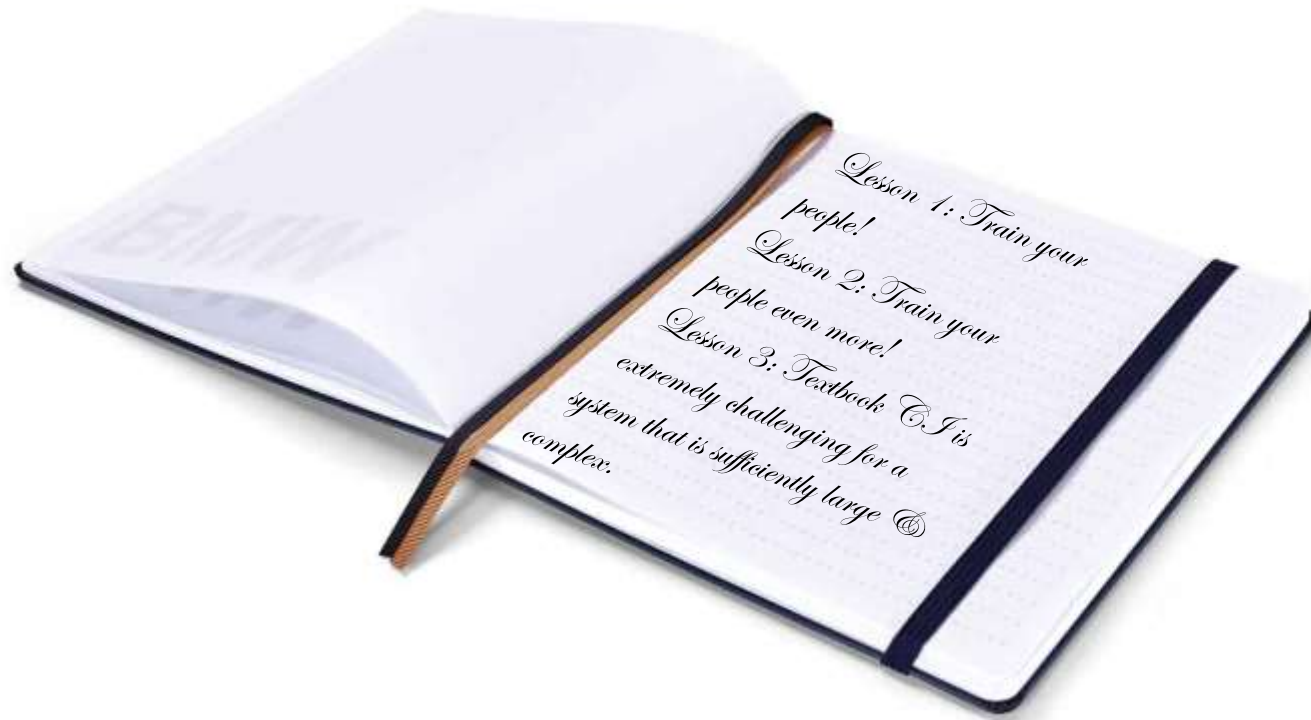 Lesson 1: Train your
people!
Lesson 2: Train your
people even more!
Lesson 3: Textbook CI is
extremely challenging for a
system that is sufficiently large &
complex.